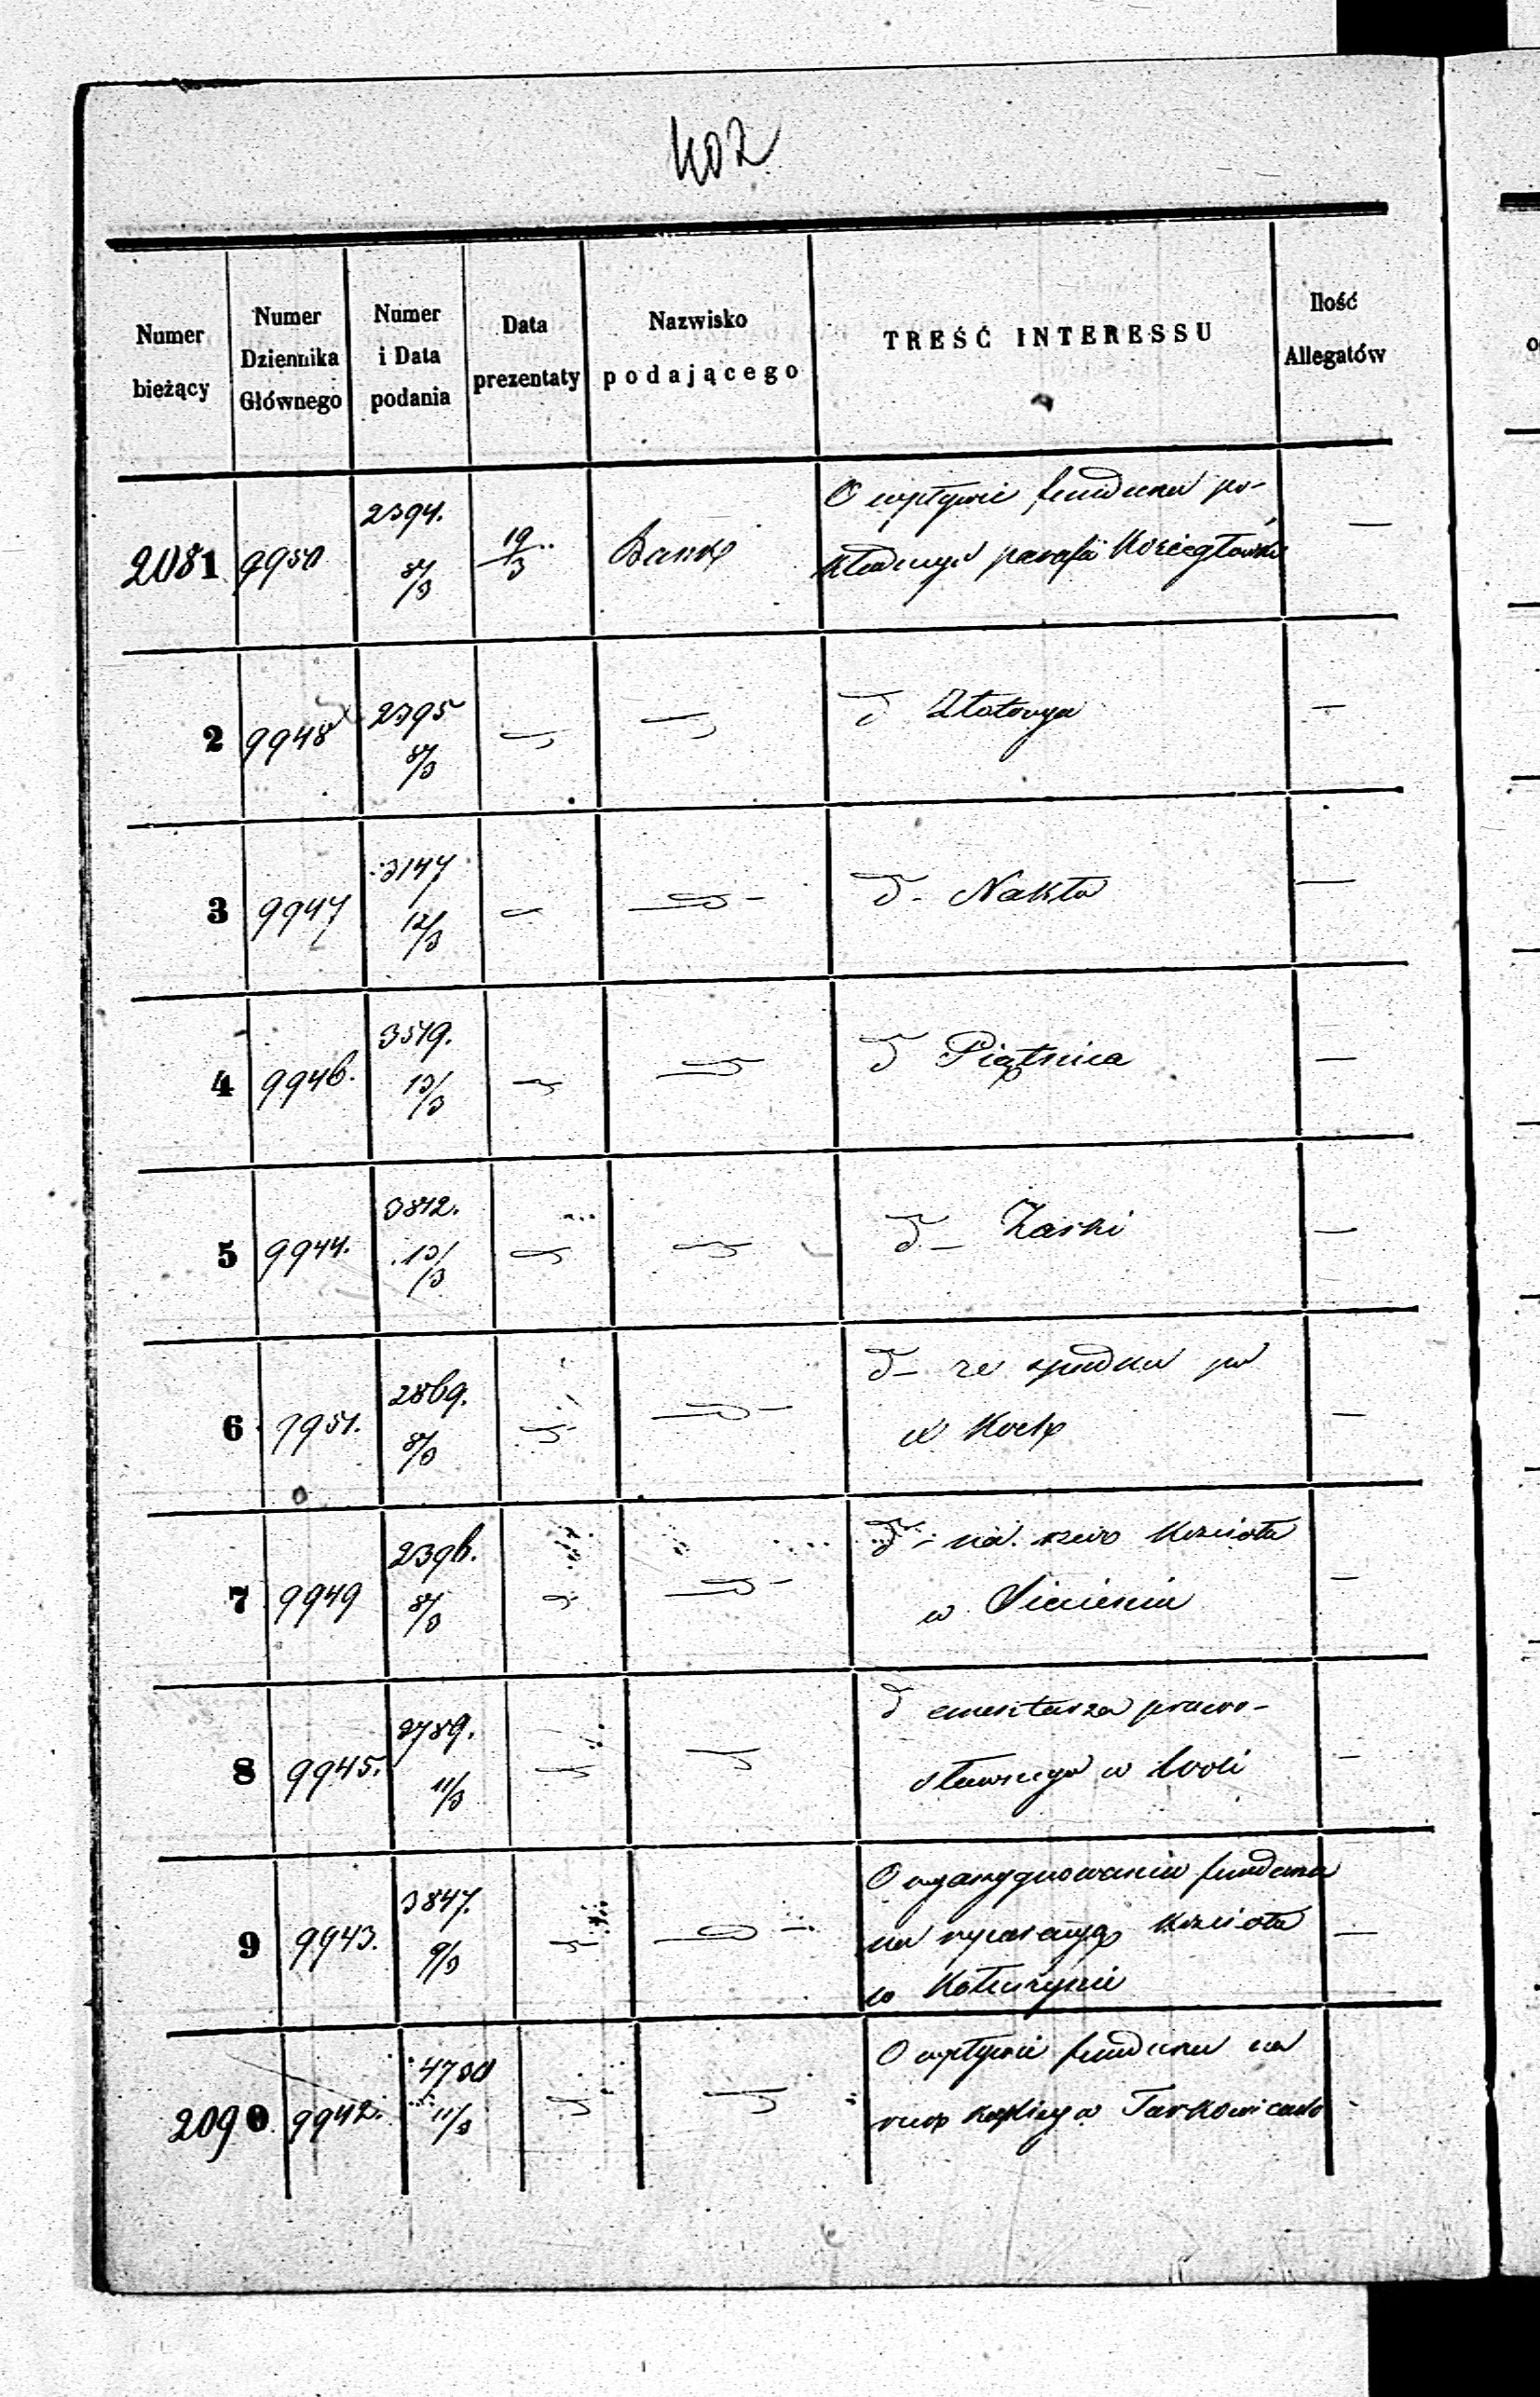 402
Numer bieżący
Numer Dziennika Głównego
Numer i Data podania
Data prezentaty
Nazwisko podającego
TREŚĆ INTERESSU
Ilość Allegatów
2081 9950 2394. 8/3 19/3 Bank O wpływie funduszu po-
kładnego parafii Koziegłówki —
2 9948 2395 8/3 d Złotorya —
3 9947 3147 12/3 d. Nakło —
4 9946. 3579. 13/3 d Piątnica —
5 9944. 3812. 13/3 d — Żarki —
6 9951. 2869. 8/3 d — ze spadku po
X Kock —
7 9949 2396. 8/3 d — na rzecz Kościoła
w Sieciechu —
8 9945. 3789. 11/3 d cmentarza prawo-
sławnego w Łodzi —
9 9943. 3847. 9/3 O wyasygnowaniu funduszu
na Kościoła
w —
2090 9942. 4730 11/3 O wpływie funduszu na
kaplicy w Tarkowicach